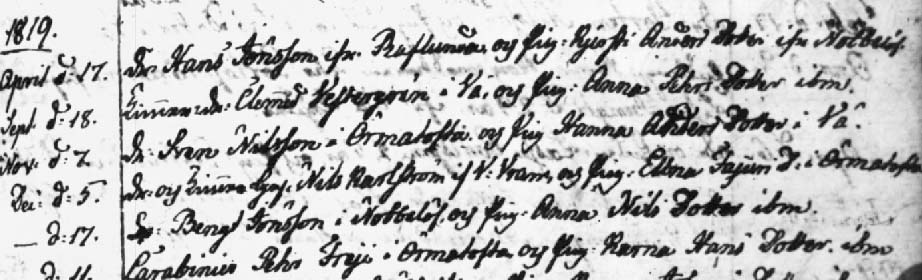 1819.
April d: 17. Dr: Hans Jönsson ifr. Raflunda och Pig: Kjersti Anders Dotter ifr Nöbbelöf
Sept. d: 18. Clemed Vestergrén i Vä, och Pig: Anna Pehrs Dotter ibm.
Nov: d: 7. Dr: Sven Nilsson i Örmatofta och Pig Hanna Anders Dotter i Vä.
Dec: d: 5. Dr: och Nils Karlström if V: Vram, och Pig: Elena D. i Örmatofta
— d: 17. Dr: Bengt Jönsson i Nöbbelöf, och Pig: Anna Nils Dotter ibm.
Carabinier Pehr i Ormatofta och Pig: Karna Hans Dotter. ibm